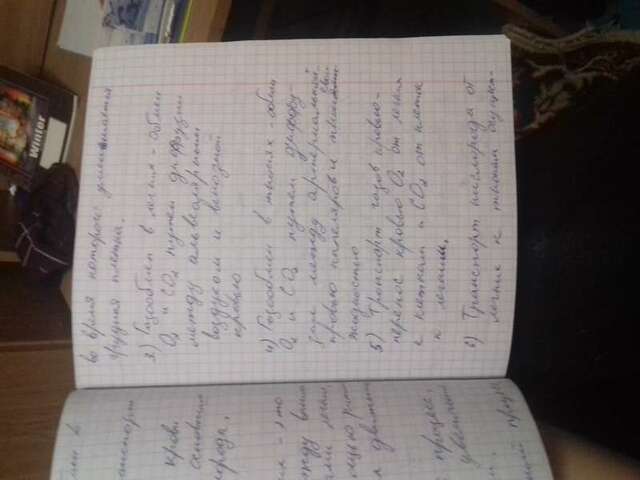 Winter
мен в
транспорт
крови
основным
лорода.
ами легких
процесс,
во время которого уменьшается
грудная клетка.
3) Газообмен в легких - обмен
O2 и CO2 путем диффузии
между альвеолярным
воздухом и венозной
кровью
4) Газообмен в тканях - обмен
O2 и CO2 путем диффу-
зии между артериальной
кровью капиляров и тканевой
жидкостью
5) Транспорт газов кровью-
перенос кровью O2 от легких
к клеткам и CO2 от клеток
к легким.
6) Транспорт кислорода от
легких к тканям осущест-